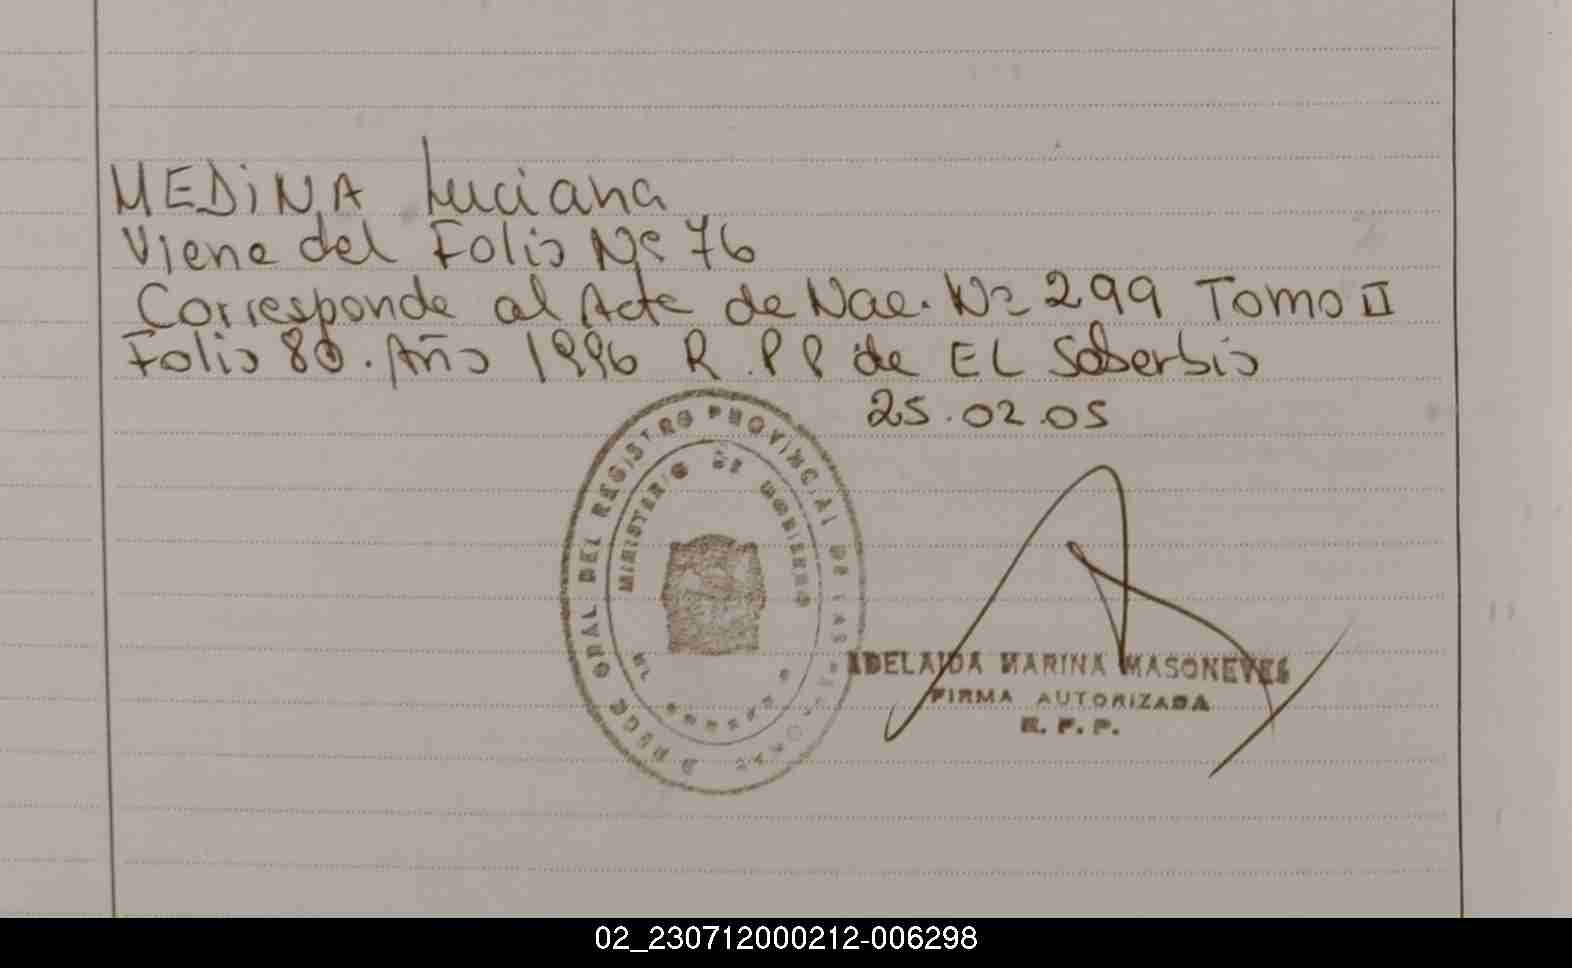 MEDINA Luciana
Viene del Folio Nº 76
Corresponde al Acta de Nac. Nº 299 Tomo II
Folio 80. Año 1996 R.P.P de EL Soberbio
25.02.05
GRAL DEL REGISTRO PROVINCIAL DE LAS
MINISTERIO DE GOBIERNO
ADELAIDA MARINA MASONEVES
FIRMA AUTORIZADA
R. P. P.
02_230712000212-006298